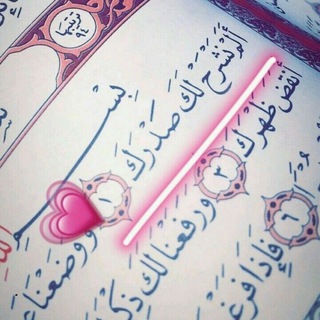 بِسْ
أَلَمْ نَشْرَحْ لَكَ صَدْرَكَ ١ وَوَضَعْنَا
أَنقَضَ ظَهْرَكَ ٣ وَرَفَعْنَا لَكَ ذِكْ
٦ فَإِذَا فَرَغْ